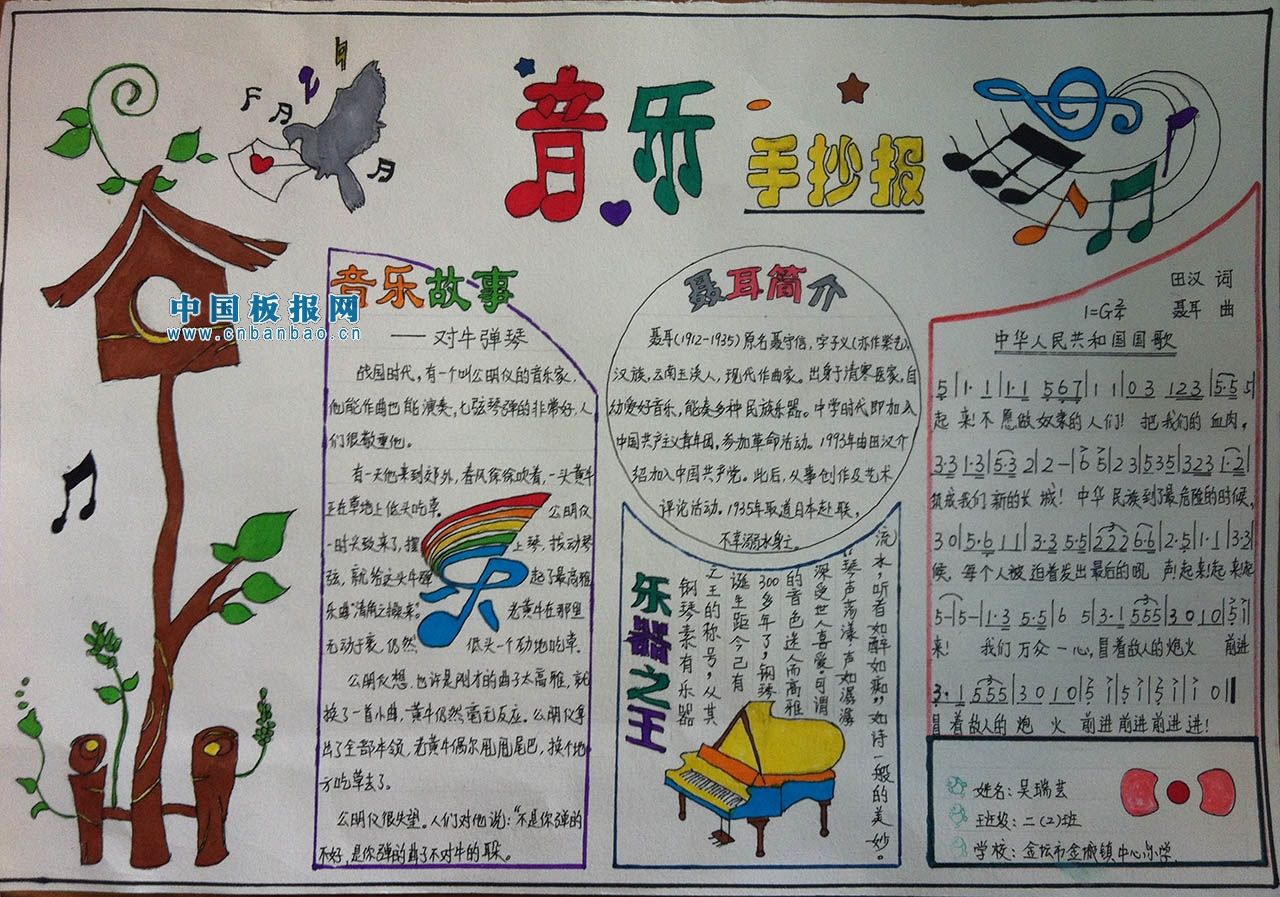 音乐
手抄报
中国板报网
www.cnbanbao.cn
音乐故事
——对牛弹琴
战国时代，有一个叫公明仪的音乐家，
他能作曲也能演奏，七弦琴弹的非常好，人
们很敬重他。
有一天他来到郊外，春风徐徐吹着，一头黄牛
正在草地上低头吃草。公明仪
一时头致来了，摆上琴，拨动琴
弦，就给这头牛弹起了最高雅
乐曲“清角之操来。”老黄牛在那里
无动于衷，仍然低头一个劲地吃草。
公明仪想，也许是刚才的曲子太高雅，就
换了一首小曲，黄牛仍然毫无反应。公明仪拿
出了全部本领，老黄牛偶尔甩甩尾巴，换个地
方吃草去了。
公明仪很失望。人们对他说：“不是你弹的
不好，是你弹的曲子不对牛的耳朵。
聂耳简介
聂耳(1912-1935)原名聂守信，字子义(亦作紫艺)，
汉族，云南玉溪人，现代作曲家。出身于清寒医家，自
幼爱好音乐，能奏多种民族乐器。中学时代即加入
中国共产主义青年团，参加革命活动。1993年由田汉介
绍加入中国共产党。此后，从事创作及艺术
评论活动。1935年取道日本赴联，
不幸溺水身亡。
乐器之王
钢琴素有乐器
之王的称号，从其
诞生距今已有
300多年了，钢琴
的音色迷人而高雅
深受世人喜爱，可谓
“琴声荡漾，声如潺潺
流水，听者如醉如痴”，如诗一般的美妙。
田汉 词
1=G调 聂耳 曲
中华人民共和国国歌
5|1·1|1·1 567|1 1|03 123|5·5 5
起来！不愿做奴隶的人们！把我们的血肉，
3·3 1·3|5·3 2|2-|6 5|2 3|535|323 1·2|
筑成我们新的长城！中华民族到了最危险的时候，
30|5·6 11|3·3 5·5|222 6·6|2·5|1·1|3·3
候，每个人被迫着发出最后的吼声！起来！起来！起
5-|5-|1·3 5·5|6 5|3·1 555|3010|51
来！我们万众一心，冒着敌人的炮火 前进
3·1 555|3010|51|51|51|10‖
冒着敌人的炮火 前进前进前进进！
姓名：吴瑞芸
班级：二(2)班
学校：金坛市金城镇中心小学